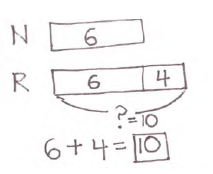 N 6
R 6 4
?=10
6+4=10